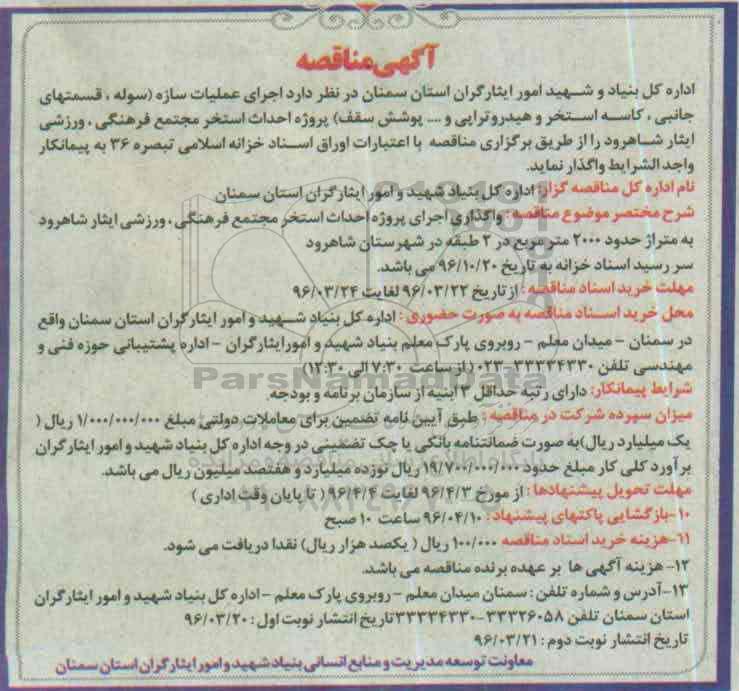 آگهی مناقصه
اداره کل بنیاد و شهید امور ایثارگران استان سمنان در نظر دارد اجرای عملیات سازه (سوله ، قسمتهای
جانبی ، کاسه استخر و هیدروتراپی و .... پوشش سقف) پروژه احداث استخر مجتمع فرهنگی ، ورزشی
ایثار شاهرود را از طریق برگزاری مناقصه با اعتبارات اوراق اسناد خزانه اسلامی تبصره ۳۶ به پیمانکار
واجد الشرایط واگذار نماید.
نام اداره کل مناقصه گزار: اداره کل بنیاد شهید و امور ایثارگران استان سمنان
شرح مختصر موضوع مناقصه : واگذاری اجرای پروژه احداث استخر مجتمع فرهنگی ، ورزشی ایثار شاهرود
به متراژ حدود ۲۰۰۰ متر مربع در ۲ طبقه در شهرستان شاهرود
سر رسید اسناد خزانه به تاریخ ۹۶/۱۰/۲۰ می باشد.
مهلت خرید اسناد مناقصه : از تاریخ ۹۶/۰۳/۲۲ لغایت ۹۶/۰۳/۲۴
محل خرید اسناد مناقصه به صورت حضوری : اداره کل بنیاد شهید و امور ایثارگران استان سمنان واقع
در سمنان - میدان معلم - روبروی پارک معلم بنیاد شهید و امورایثارگران - اداره پشتیبانی حوزه فنی و
مهندسی تلفن ۳۳۳۳۴۳۳۰-۰۲۳ (از ساعت ۷:۳۰ الی ۱۲:۳۰)
شرایط پیمانکار: دارای رتبه حداقل ۳ ابنیه از سازمان برنامه و بودجه.
میزان سپرده شرکت در مناقصه : طبق آیین نامه تضمین برای معاملات دولتی مبلغ ۱/۰۰۰/۰۰۰/۰۰۰ ریال (
یک میلیارد ریال)به صورت ضمانتنامه بانکی یا چک تضمینی در وجه اداره کل بنیاد شهید و امور ایثارگران
برآورد کلی کار مبلغ حدود ۱۹/۷۰۰/۰۰۰/۰۰۰ ریال نوزده میلیارد و هفتصد میلیون ریال می باشد.
مهلت تحویل پیشنهادها : از مورخ ۹۶/۴/۳ لغایت ۹۶/۴/۴ ( تا پایان وقت اداری )
۱۰-بازگشایی پاکتهای پیشنهاد : ۹۶/۰۴/۱۰ ساعت ۱۰ صبح
۱۱-هزینه خرید اسناد مناقصه ۱۰۰/۰۰۰ ریال ( یکصد هزار ریال) نقدا دریافت می شود.
۱۲- هزینه آگهی ها بر عهده برنده مناقصه می باشد.
۱۳-آدرس و شماره تلفن : سمنان میدان معلم - روبروی پارک معلم - اداره کل بنیاد شهید و امور ایثارگران
استان سمنان تلفن ۳۳۳۲۶۰۵۸-۳۳۳۳۴۳۳۰تاریخ انتشار نوبت اول : ۹۶/۰۳/۲۰
تاریخ انتشار نوبت دوم : ۹۶/۰۳/۲۱
معاونت توسعه مدیریت و منابع انسانی بنیاد شهید و امور ایثارگران استان سمنان
ParsNamadData